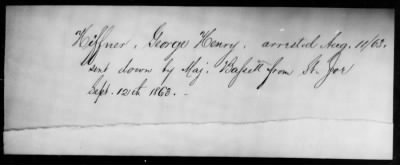 Hiffner, George Henry. arrested Aug. 11/63.
sent down by Maj. Bassett from St. Joe
Sept. 12th 1863. -